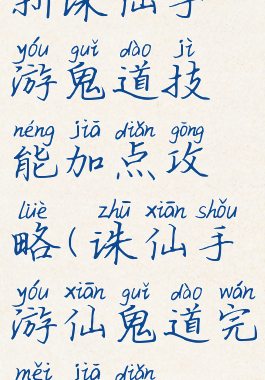 新诛仙手
yóu guǐ dào jì
游鬼道技
néng jiā diǎn gōng
能加点攻
lüè zhū xiān shǒu
略(诛仙手
yóu xiān guǐ dào wán
游仙鬼道完
měi jiā diǎn